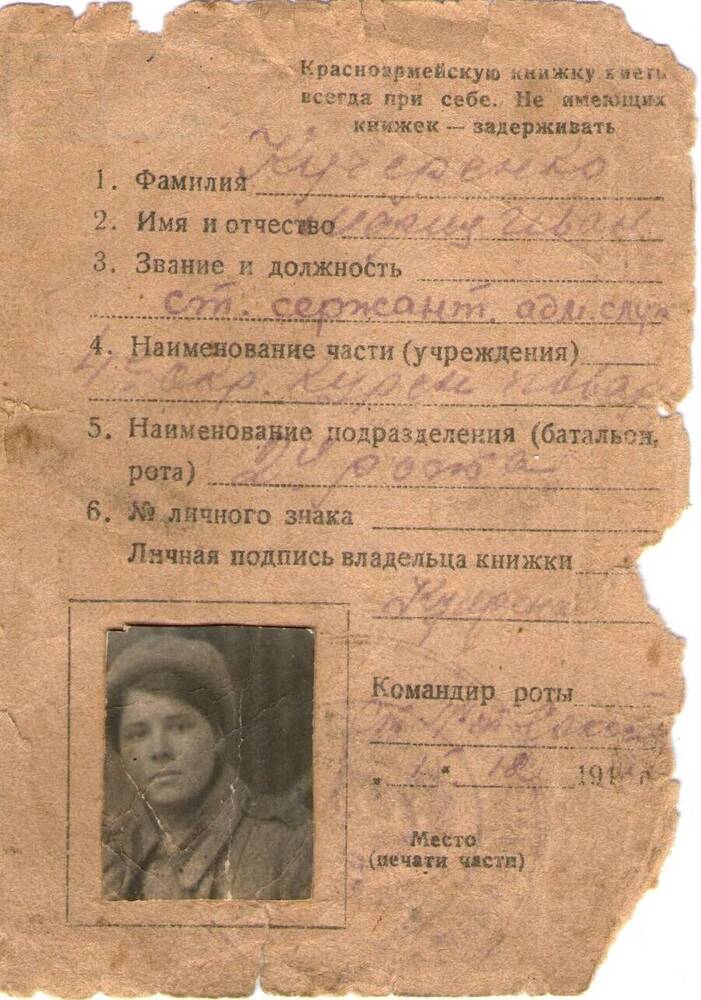 Красноармейскую книжку иметь
всегда при себе. Не имеющих
книжек — задерживать
1. Фамилия Кучеренко
2. Имя и отчество Иван
3. Звание и должность
ст. сержант. адм. служ
4. Наименование части (учреждения)
4 окр. повар
5. Наименование подразделения (батальон,
рота) 2я рота
6. № личного знака
Личная подпись владельца книжки
Командир роты
194 г
Место
(печати части)